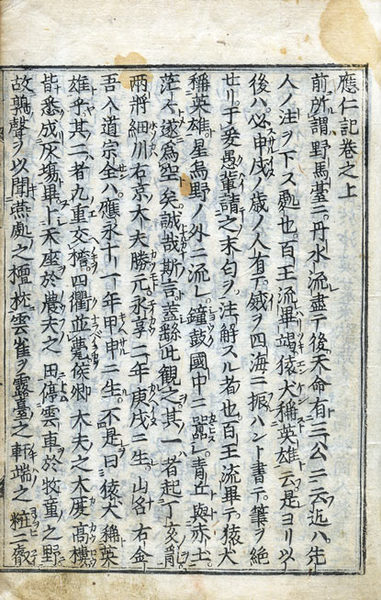 應仁記卷之上
前所謂野馬臺ニ丹水流盡テ後天命有三公ニト云迄ハ先
人ノ注ヲ下ス處也百王流畢竭猿犬稱英雄云是ヨリ以
後ハ必甲戌ノ歳ノ人有テ鉞ヲ四海ニ振ハント書テ筆ヲ絶
セリ于爰愚輩請之末句ヲ注解スル者也百王流畢テ猿犬
稱英雄星鳥野ノ外ニ流レ鐘鼓國中ニ囂シ青丘與赤土
茫々遂為空矣誠哉斯言蓋緜此觀之其一者起丁亥
両將細川右京大夫勝元永享二年庚戌ニ生山名右金
吾入道宗全ハ應永十一年甲申ニ生不是曰猿犬稱英
雄乎其二者九重交四衢並甍侯卿大夫之大廈高樓
皆悉成灰塲畢卜天座於農夫之田停雲車於牧童之野
故鶉聲ヲ以聞燕處之檀枕雲雀ヲ露臺之軒端之粧ニ